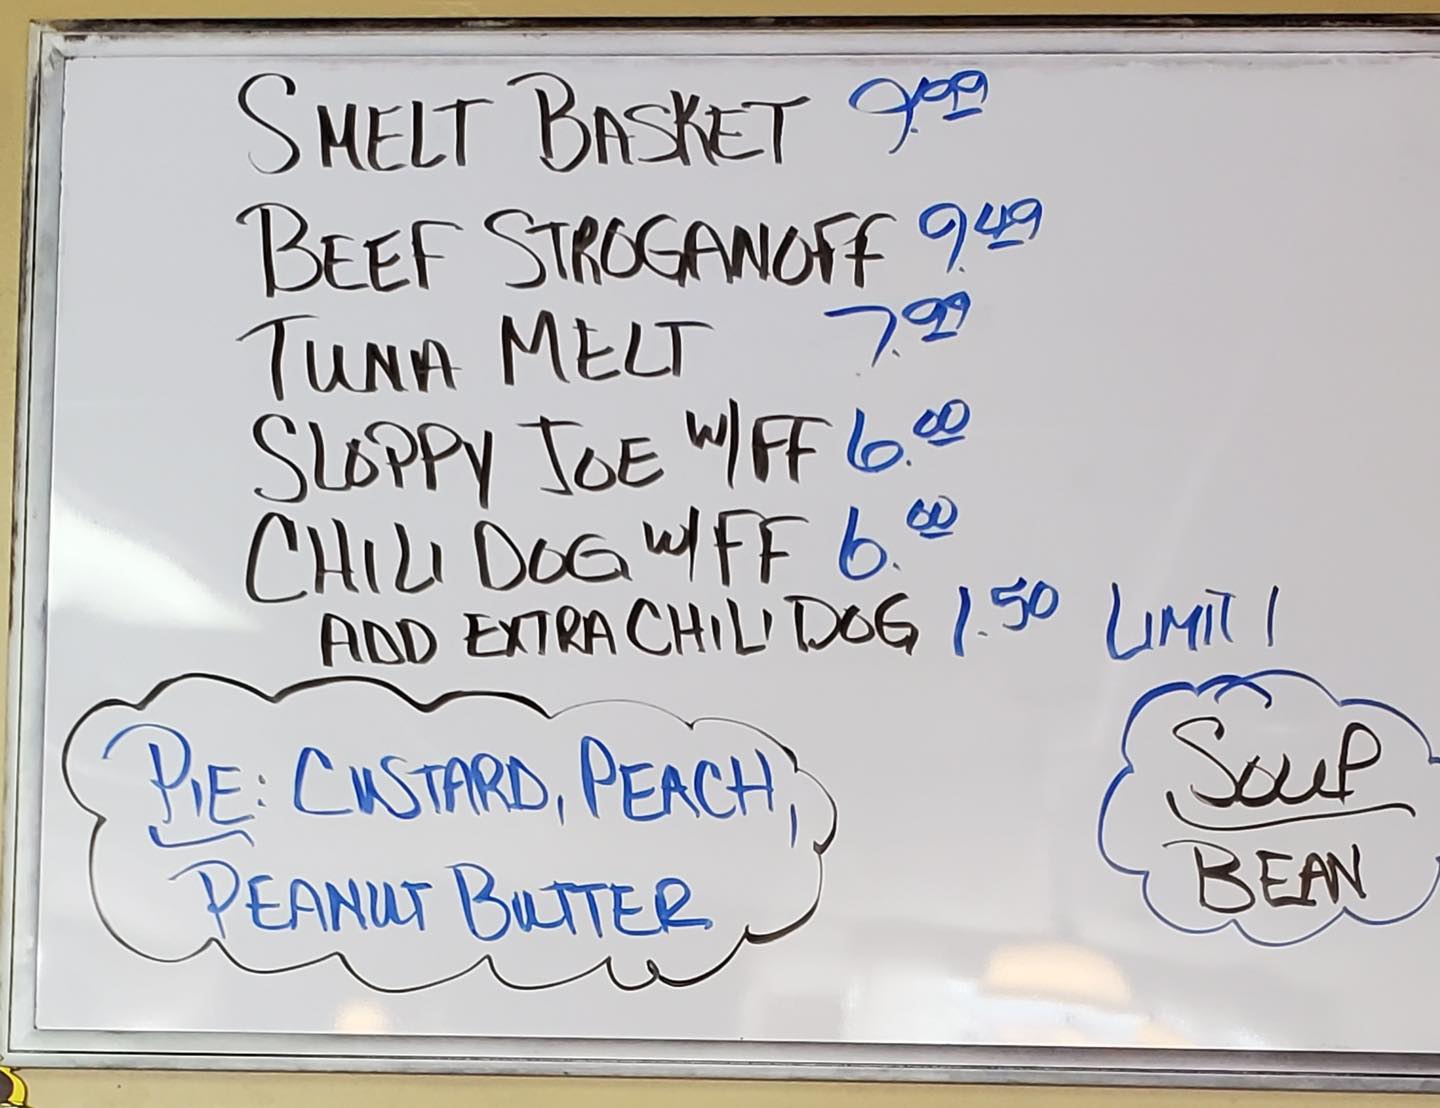 SMELT BASKET 9.99
BEEF STROGANOFF 9.49
TUNA MELT 7.99
SLOPPY JOE W/FF 6.00
CHILI DOG W/FF 6.00
ADD EXTRA CHILI DOG 1.50 LIMIT 1
PIE: CUSTARD, PEACH,
PEANUT BUTTER
SOUP
BEAN